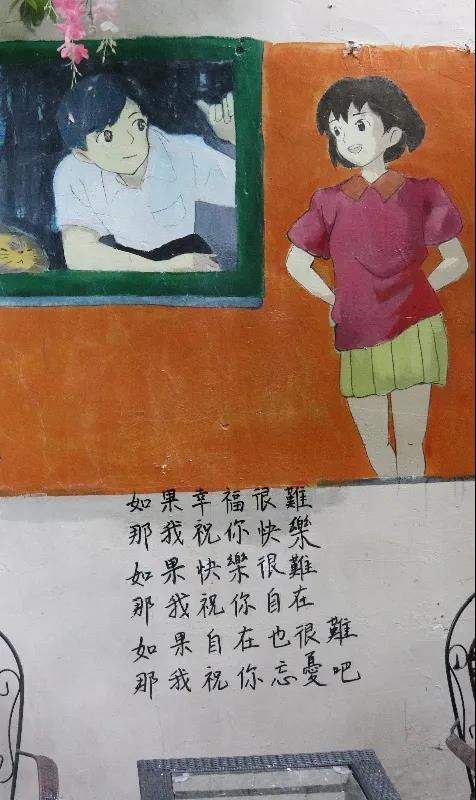 如果幸福很難
那我祝你快樂
如果快樂很難
那我祝你自在
如果自在也很難
那我祝你忘憂吧